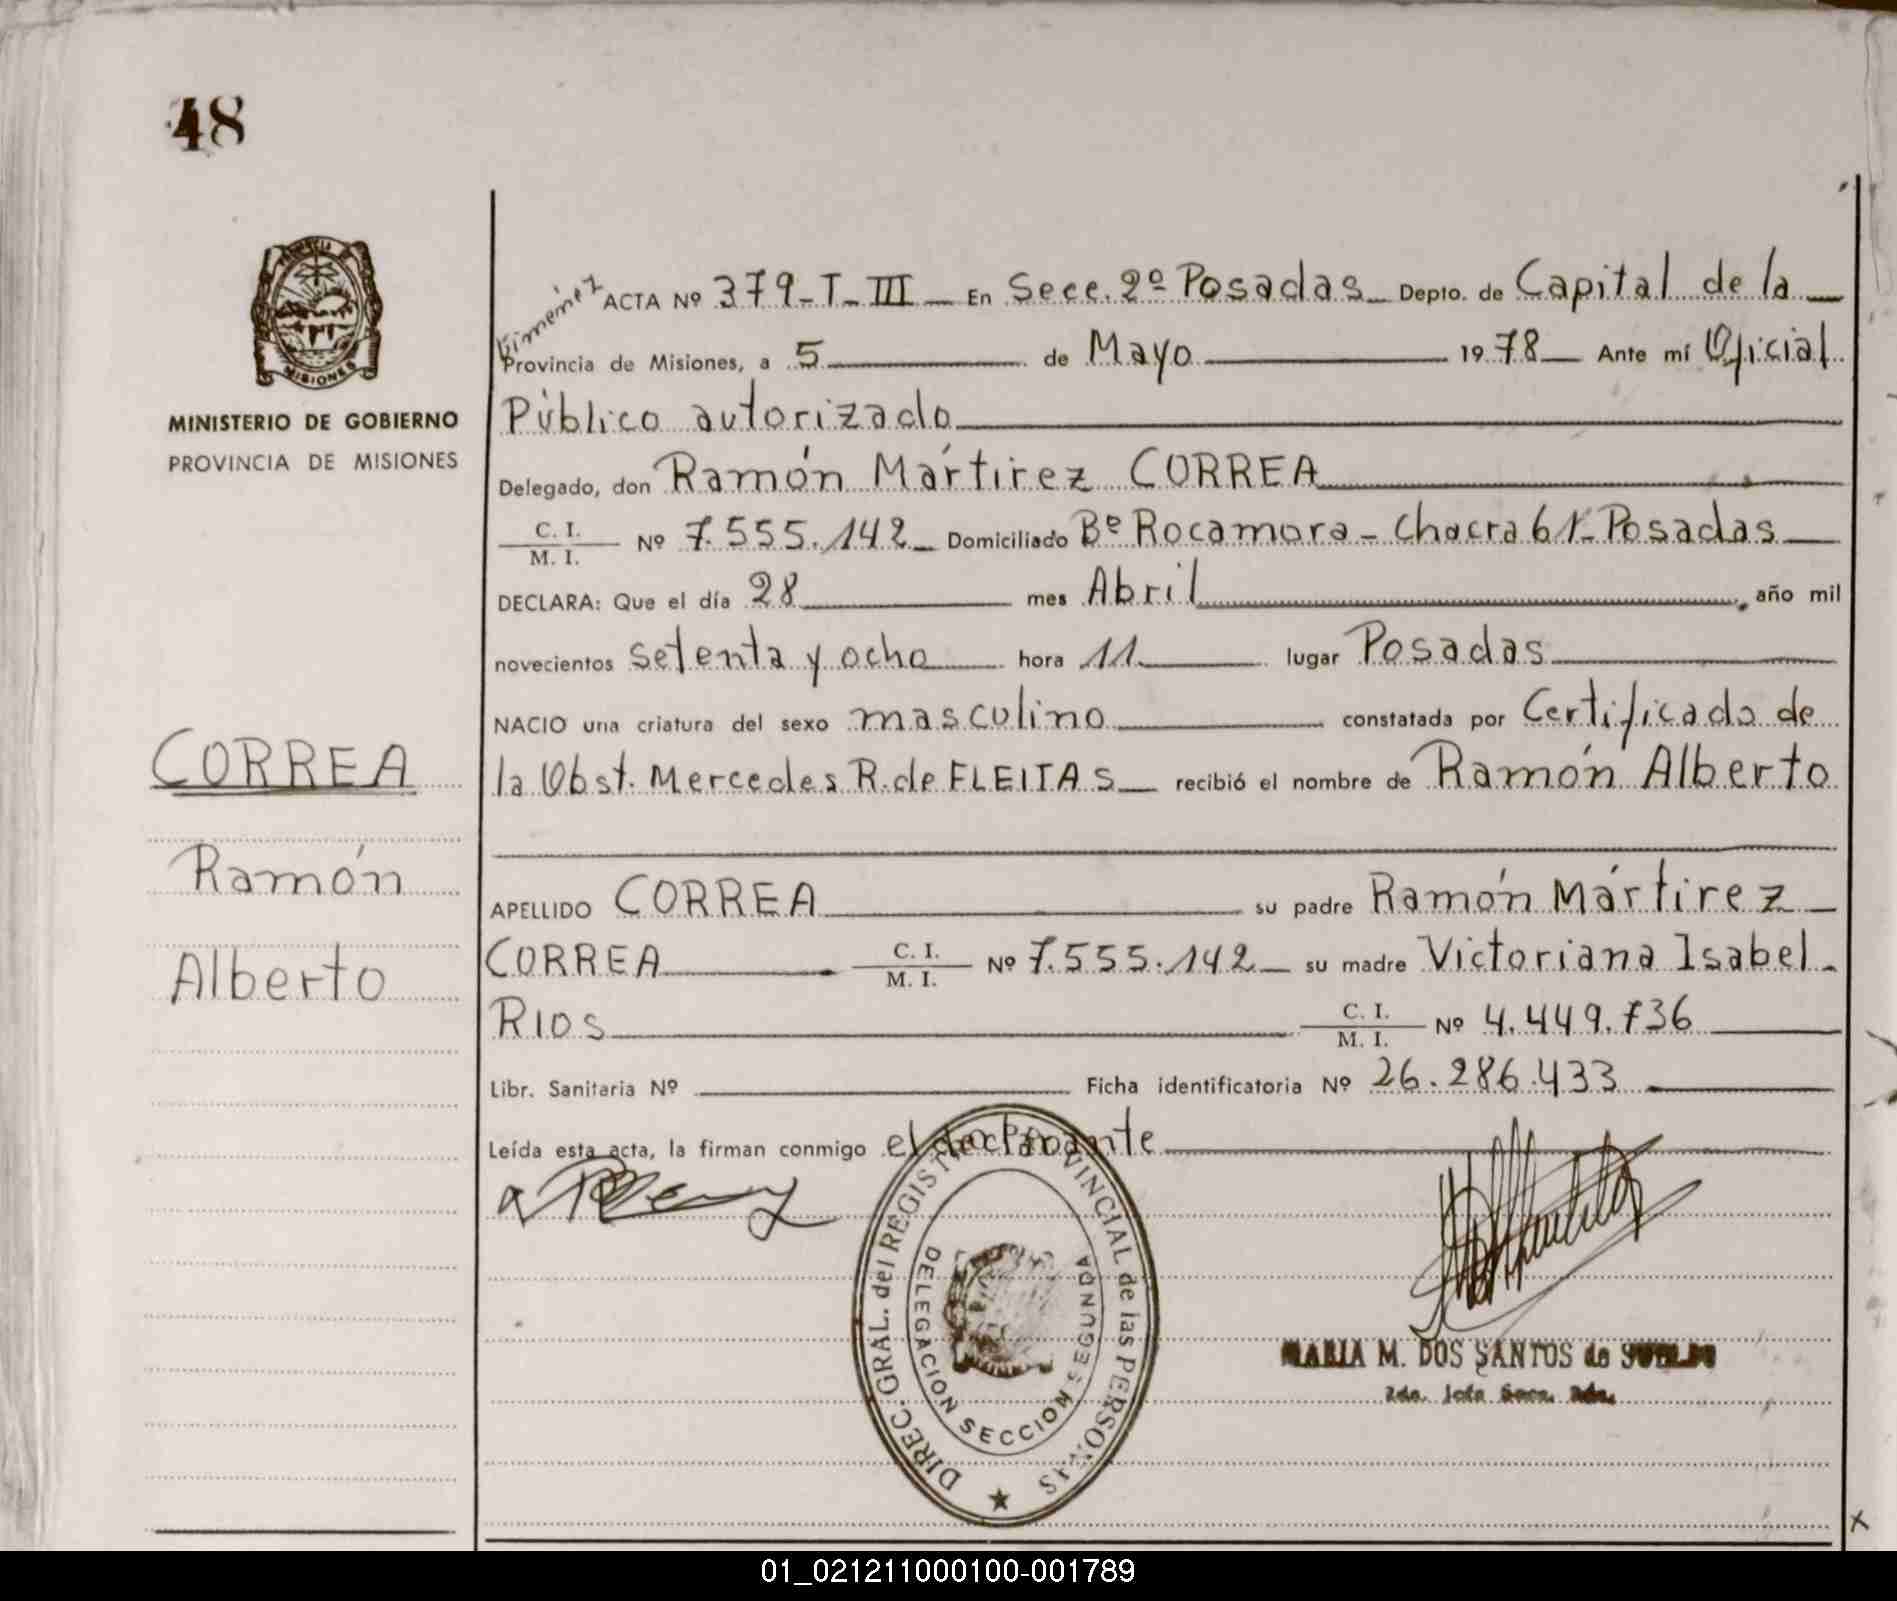 48
MISIONES
MINISTERIO DE GOBIERNO
PROVINCIA DE MISIONES
CORREA
Ramón
Alberto
Gimenez
ACTA Nº 379-T-III En Secc. 2º Posadas Depto. de Capital de la
Provincia de Misiones, a 5 de Mayo 1978 Ante mí Oficial
Público autorizado
Delegado, don Ramón Mártirez CORREA
C. I.
M. I. Nº 7.555.142 Domiciliado Bº Rocamora - Chacra 61 - Posadas
DECLARA: Que el día 28 mes Abril, año mil
novecientos setenta y ocho hora 11 lugar Posadas
NACIO una criatura del sexo masculino constatada por Certificado de
la Obst. Mercedes R. de FLEITAS recibió el nombre de Ramón Alberto
APELLIDO CORREA su padre Ramón Mártirez
CORREA C. I.
M. I. Nº 7.555.142 su madre Victoriana Isabel
RIOS C. I.
M. I. Nº 4.449.736
Libr. Sanitaria Nº Ficha identificatoria Nº 26.286.433
Leída esta acta, la firman conmigo el declarante
DIREC. GRAL. del REGISTRO PROVINCIAL de las PERSONAS
DELEGACION SECCION SEGUNDA
MARIA M. DOS SANTOS de
2do. Jefe Secc. 2da.
x
01_021211000100-001789